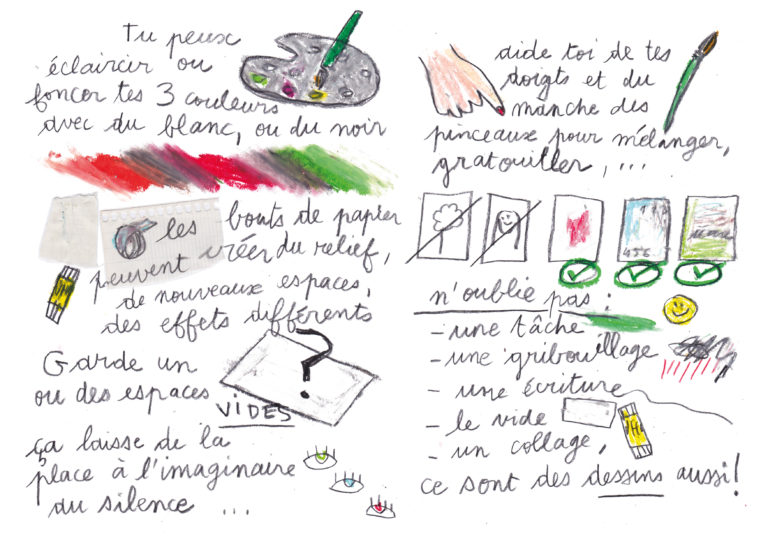 Tu peux
éclaircir ou
foncer tes 3 couleurs
avec du blanc, ou du noir
les bouts de papier
peuvent créer du relief,
de nouveaux espaces,
des effets différents
Garde un
ou des espaces
VIDES
?
ça laisse de la
place à l'imaginaire
du silence ...
aide toi de tes
doigts et du
manche des
pinceaux pour mélanger,
gratouiller, ...
n'oublie pas :
- une tâche
- une gribouillage
- une écriture
- le vide
- un collage,
ce sont des dessins aussi!